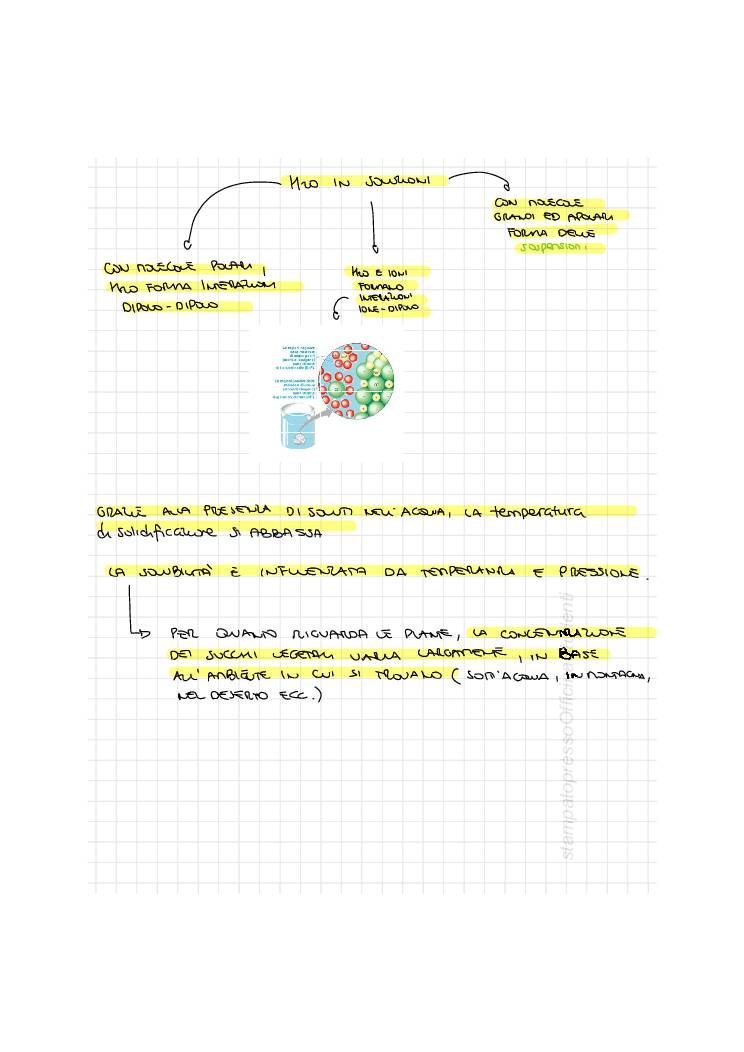 H2O IN SOLUZIONI
CON MOLECOLE POLARI,
H2O FORMA INTERAZIONI
DIPOLO-DIPOLO
H2O E IONI
FORMANO
INTERAZIONI
IONE-DIPOLO
CON MOLECOLE
GRANDI ED APOLARI
FORMA DELLE
SOSPENSIONI
GRAZIE ALLA PRESENZA DI SOLUTI NELL'ACQUA, LA temperatura
di solidificazione SI ABBASSA
LA SOLUBILITÀ È INFLUENZATA DA TEMPERATURA E PRESSIONE.
PER QUANTO RIGUARDA LE PIANTE, LA CONCENTRAZIONE
DEI SUCCHI VEGETALI VARIA LARGAMENTE, IN BASE
ALL'AMBIENTE IN CUI SI TROVANO (SOTT'ACQUA, IN MONTAGNA,
NEL DESERTO ECC.)